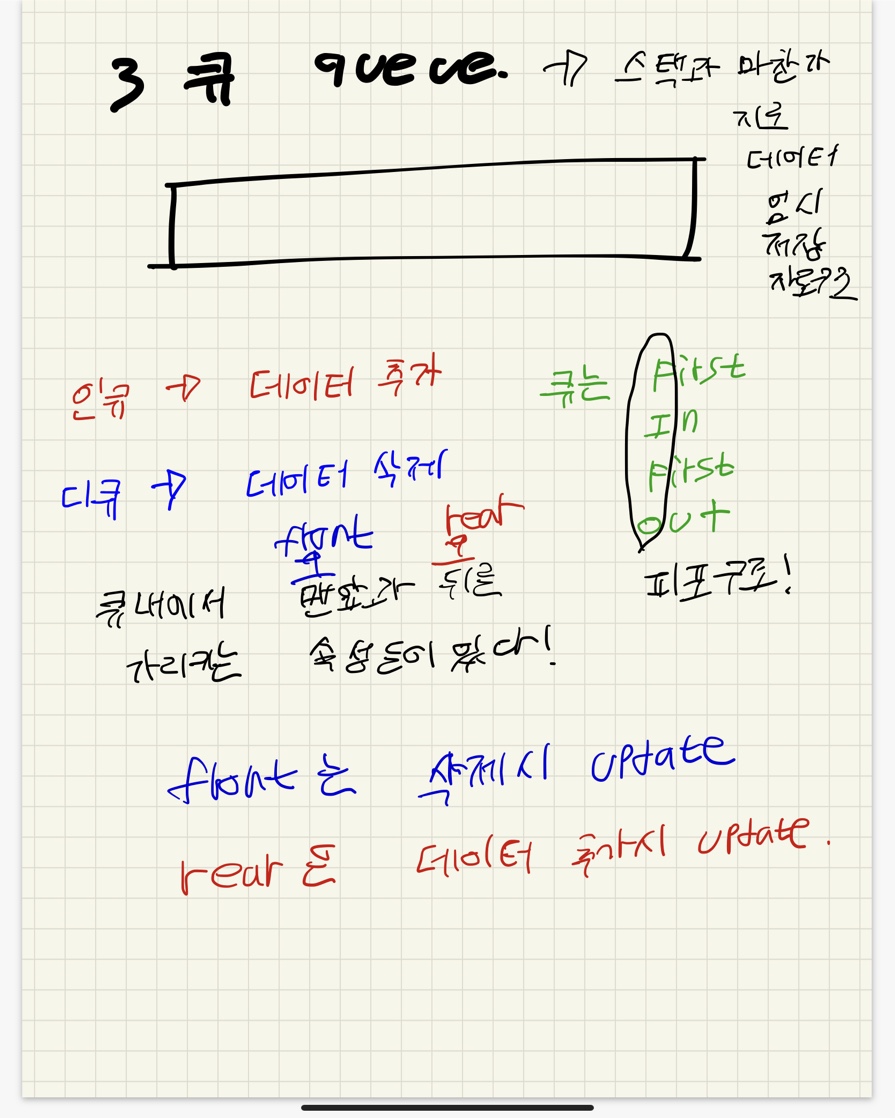 3 큐 queue. → 스택과 마찬가
지로
데이터
임시
저장
자료구조
인큐 → 데이터 추가
디큐 → 데이터 삭제
큐는 First
In
First
Out
피포구조!
front rear
큐 내에서 맨앞과 뒤를
가리키는 속성들이 있다!
front 는 삭제시 update
rear 는 데이터 추가시 update.